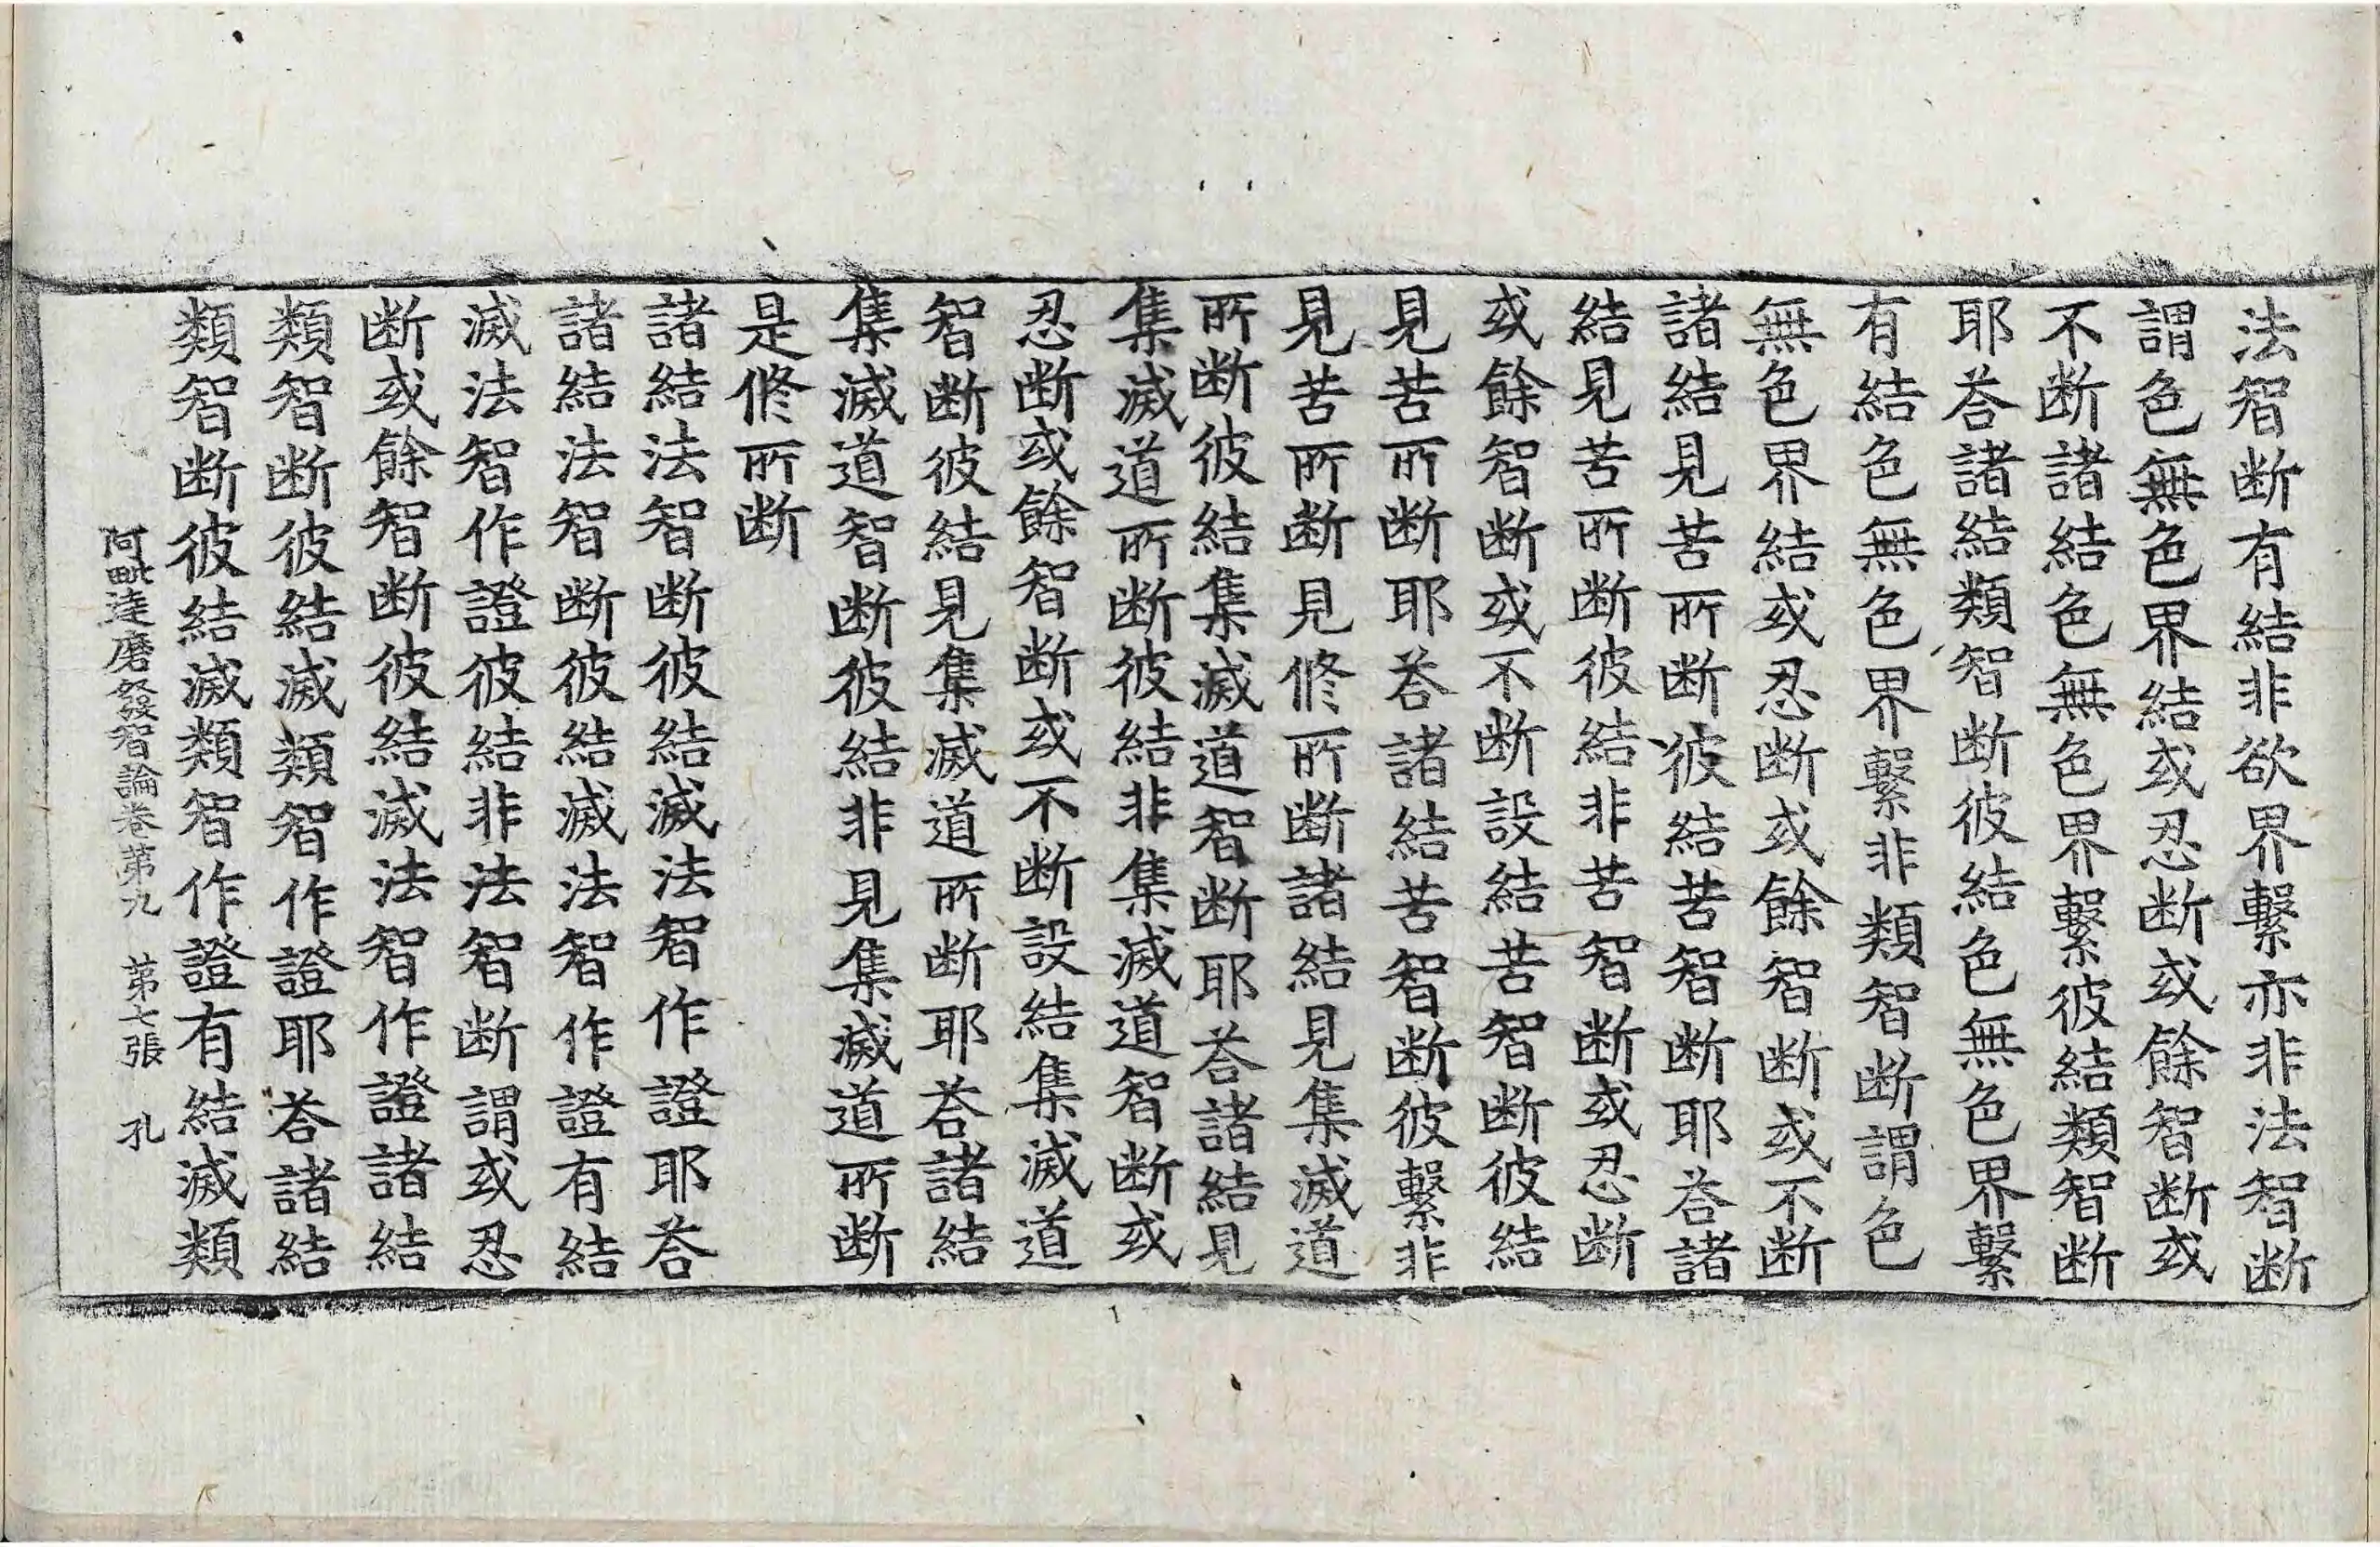 法智断有結非欲界繫亦非法智断
謂色無色界結或忍断或餘智断或
不断諸結色無色界繫彼結類智断
耶荅諸結類智断彼結色無色界繫
有結色無色界繫非類智断謂色
無色界結或忍断或餘智断或不断
諸結見苦所断彼結苦智断耶荅諸
結見苦所断彼結非苦智断或忍断
或餘智断或不断設結苦智断彼結
見苦所断耶荅諸結苦智断彼繫非
見苦所断見修所断諸結見集滅道
所断彼結集滅道智断耶荅諸結見
集滅道所断彼結非集滅道智断或
忍断或餘智断或不断設結集滅道
智断彼結見集滅道所断耶荅諸結
集滅道智断彼結非見集滅道所断
是修所断
諸結法智断彼結滅法智作證耶荅
諸結法智断彼結滅法智作證有結
滅法智作證彼結非法智断謂或忍
断或餘智断彼結滅法智作證諸結
類智断彼結滅類智作證耶荅諸結
類智断彼結滅類智作證有結滅類
阿毗達磨發智論卷第九 第七張 孔